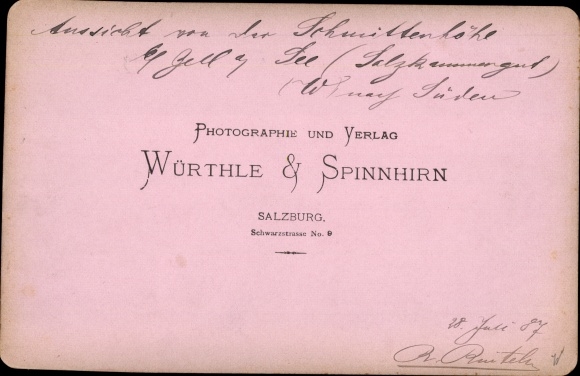 Aussicht von der Schmittenhöhe
b/ Zell a/ See (Salzkammergut)
nach Süden
PHOTOGRAPHIE UND VERLAG
WÜRTHLE & SPINNHIRN
SALZBURG,
Schwarzstrasse No. 9
28. Juli 87